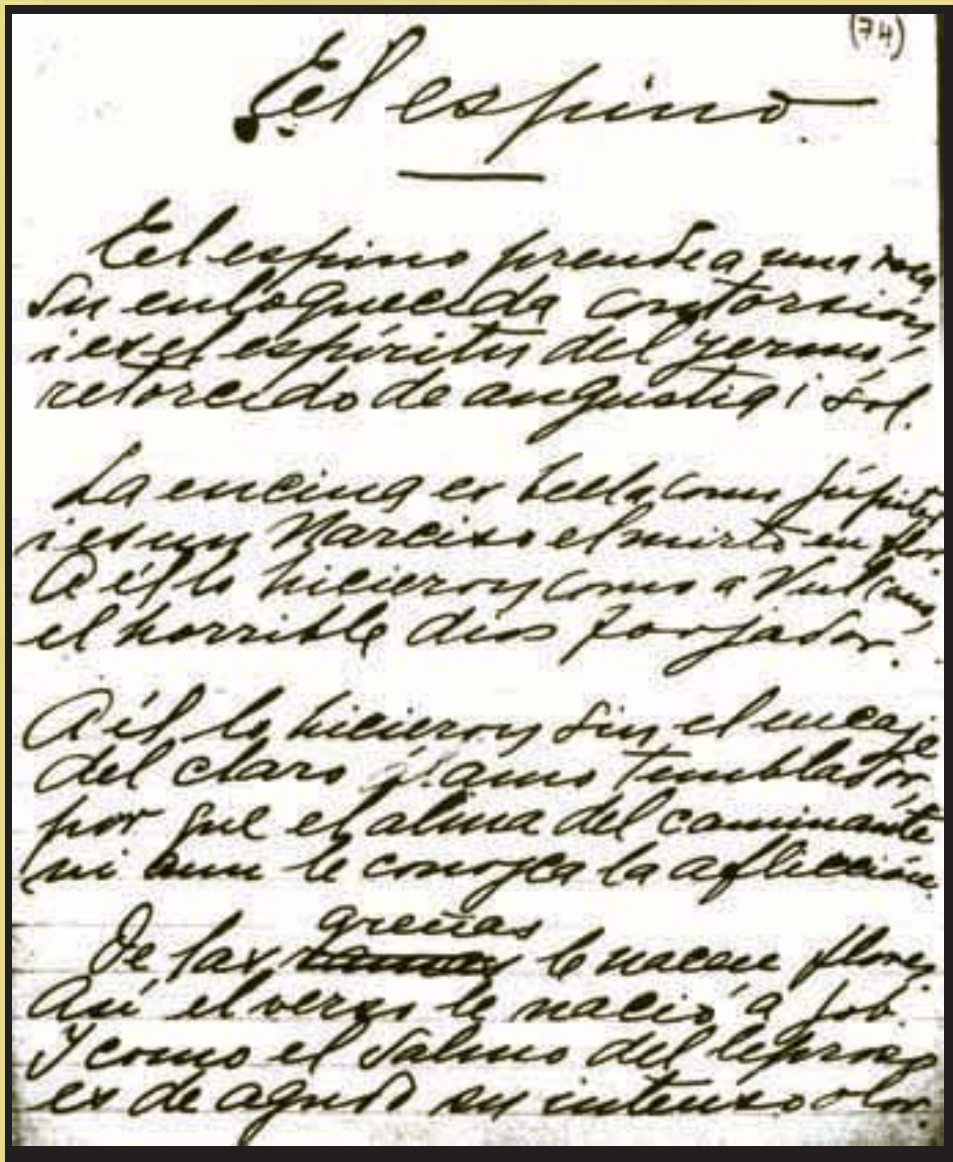 (74)
El espino.
El espino prende a una roca
su enloquecida contorsión
i es el espíritu del yermo,
retorcido de angustia i sol.
La encina es bella como Júpiter
i es un Narciso el mirto en flor.
A él lo hicieron como a Vulcano,
el horrible dios forjador.
A él lo hicieron sin el encaje
del claro álamo temblador,
por que el alma del caminante
ni aun le conozca la aflicción.
greñas
De las ramas le nacen flores.
Así el verso le nació a Job.
Y como el salmo del leproso
es de agudo su intenso olor.